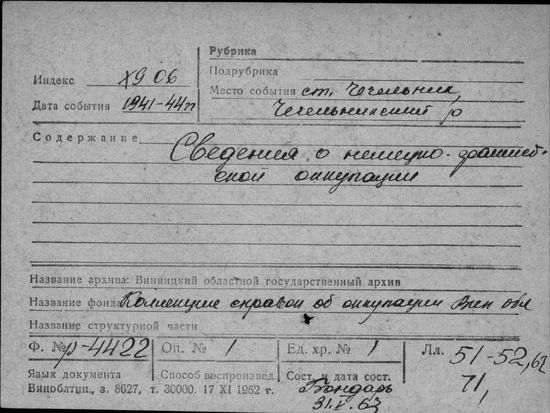 Рубрика
Индекс х9 06
Подрубрика
Дата события 1941-44гг
Место события ст. Чечельник,
Чечельницкий р
Содержание Сведения о немецко-фашист-
ской оккупации
Название архива: Винницкой областной государственный архив
Название фонда Коллекция справок об оккупации Вин обл
Название структурной части
Ф. № р-4422 Оп. № 1 Ед. хр. № 1 Лл. 51-52, 62
71,
Язык документа Способ воспроизвед. Сост. и дата сост.
Бондарь
31.V.63
Виноблтип., з. 8627, т. 30000. 17 XI 1962 г.